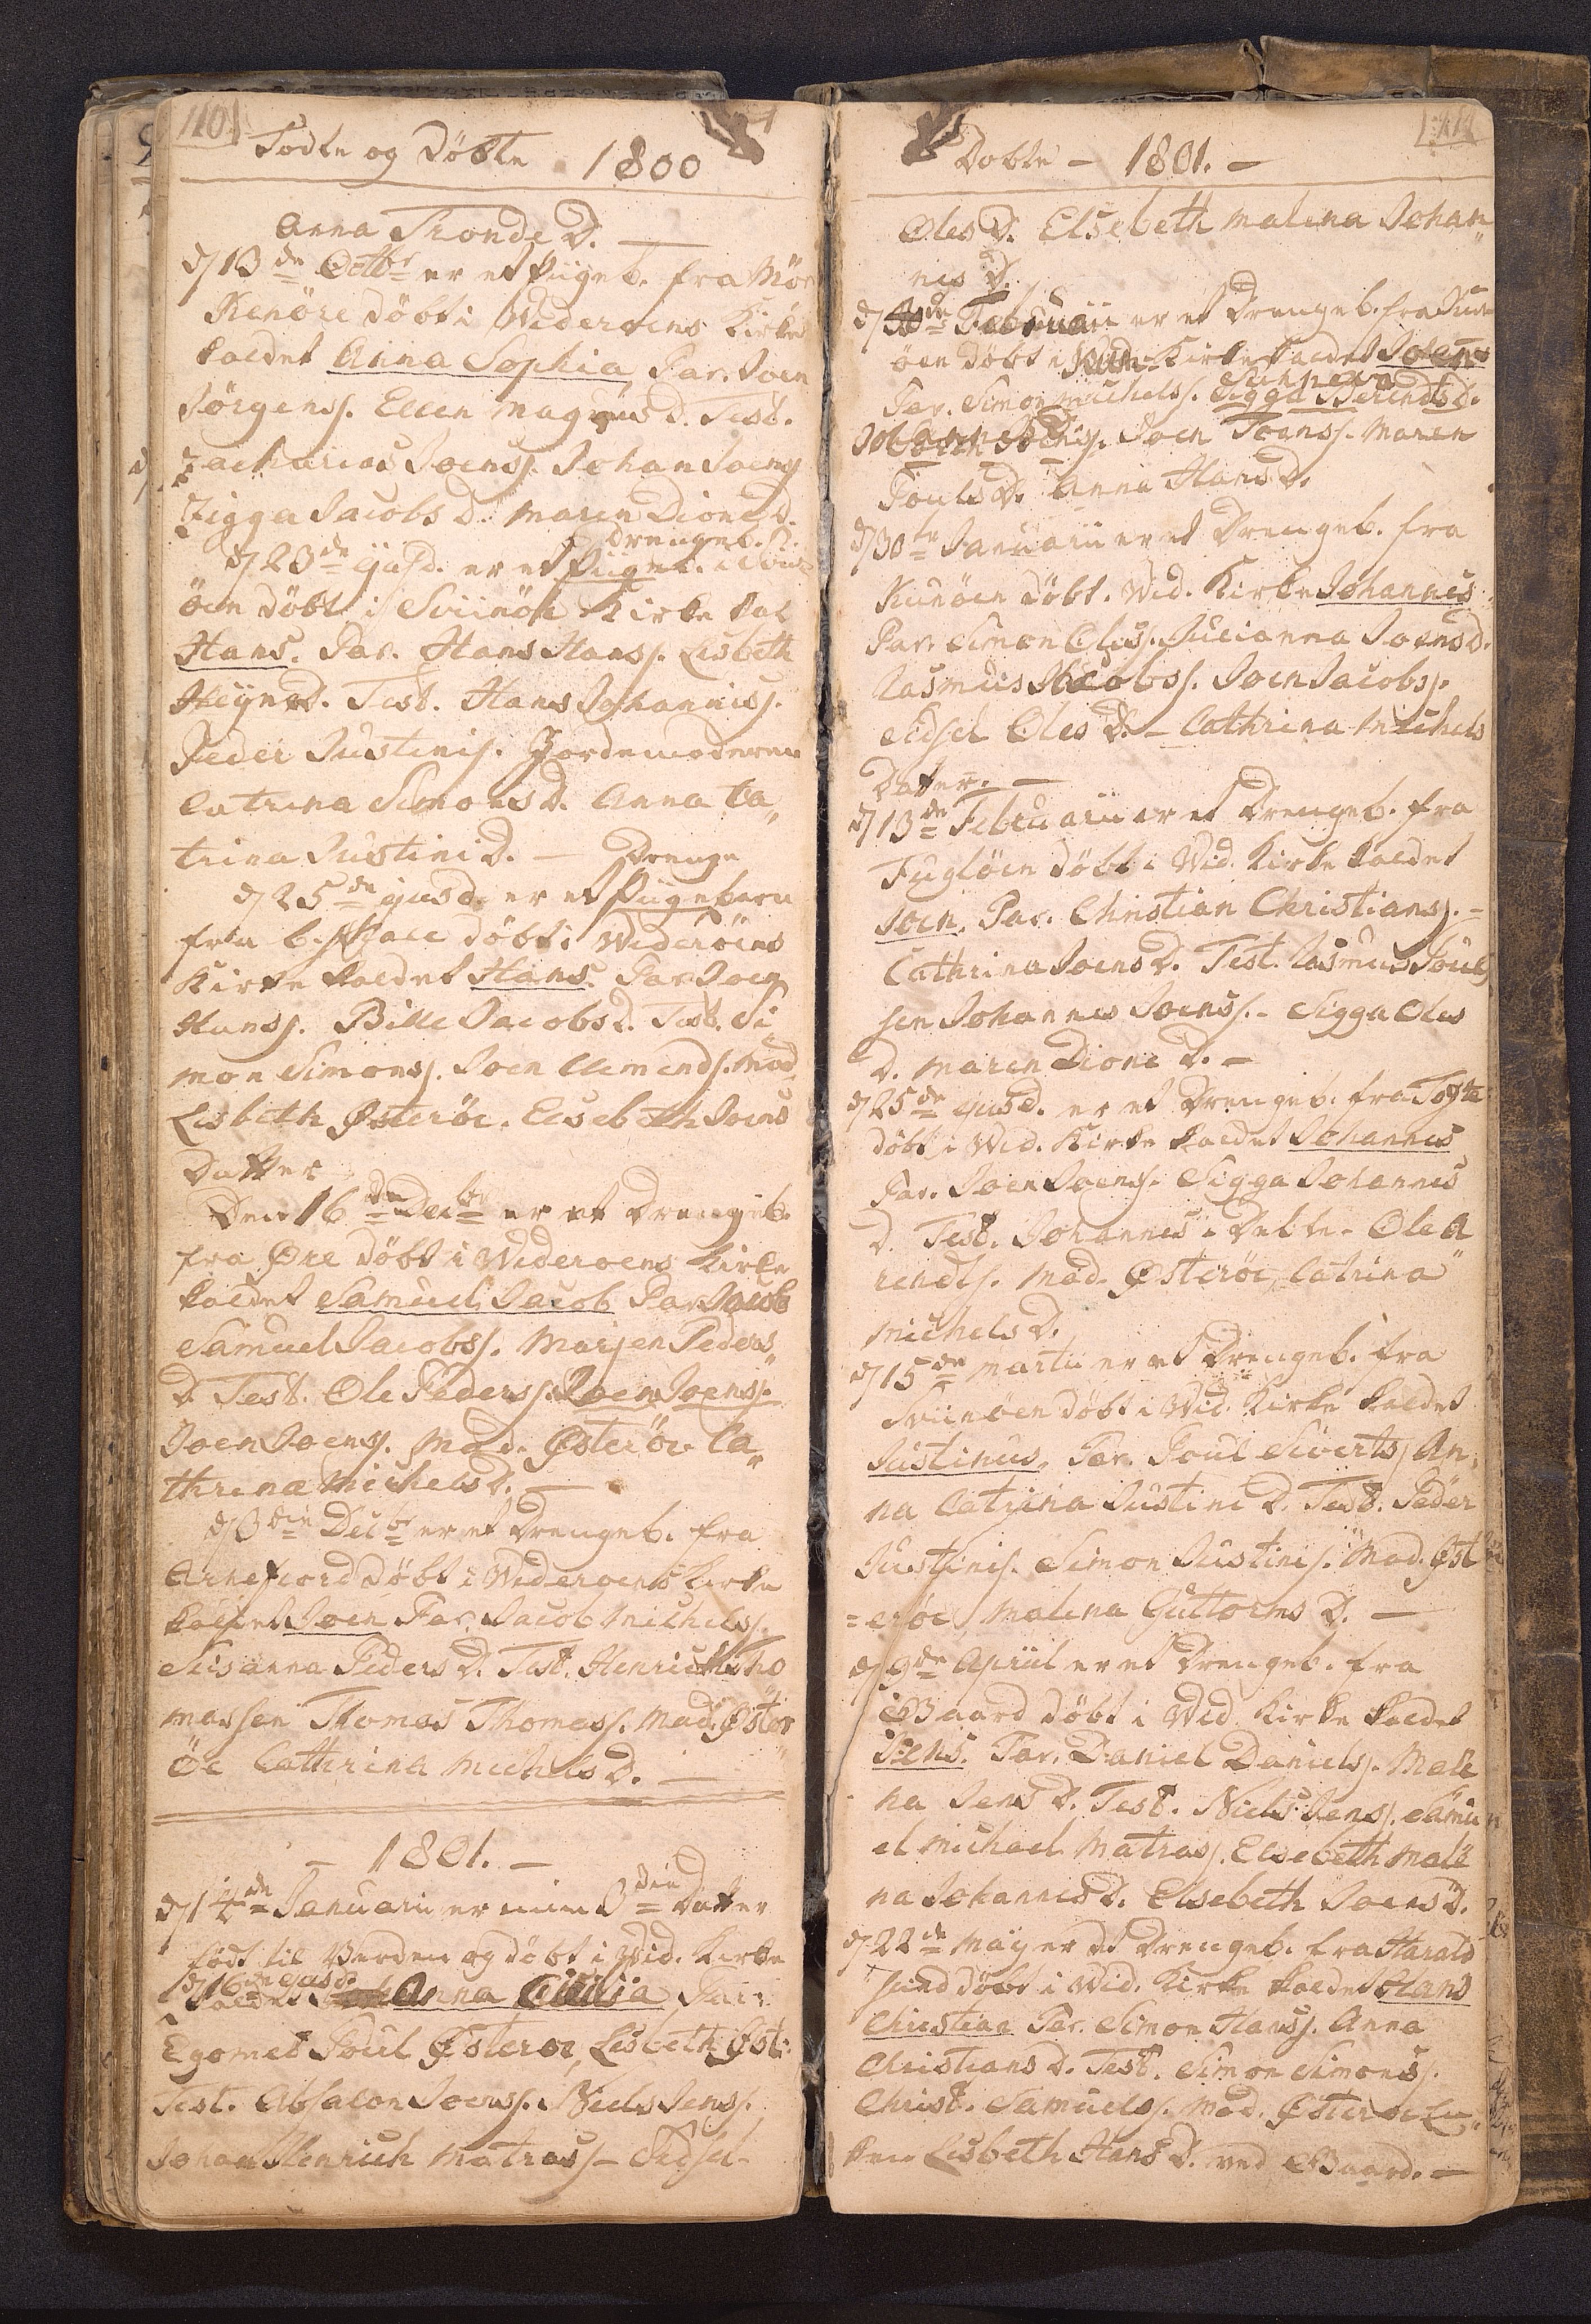 110
Födte og Döbte 1800
Anna Tronde D.
d/ 13de Octbr er et Piigeb. fra Mör
Kenöre döbt i Wideröens Kirke
kaldet Anna Sophia, Par. Joen
Jörgens/. Ellen Magnus D. Test.
Zacharias Joens/. Johan Joens/
Zigga Jacobs D. Maren Dione D.
Drengeb.
d/ 23de ejusd. er et Piigeb. i Svii
öen döbt i Sviinöe Kirke kal
Hans. Par. Hans Hans/. Lisbeth
Heyne D. Test. Hans Johannis/.
Peder Justinis/. Jordemoderen
Catrina Simons D. Anna Ca„
trina Justini D. — Drenge
d/ 25de ejusd. er et Piigebarn
fra döbt i Wideröens
Kirke kaldet Hans. Par. Joen
Hans/. Bille Jacobs D. Test. Si„
mon Simons/. Joen Clemends/. Mad
Lisbeth Österöe. Elsebeth Joens
Datter
Den 16de Decbr er et Drengeb.
fra Öre döbt i Wideroens Kirke
kaldet Samuel Jacob Par. Jacob
Samuel Jacobs/. Marjen Peders„
D. Test. Ole Peders/. Joen Joens/.
Joen Joens/. Mad. Österöe Ca„
thrina Michels D. —
d/ 3die Decbr er et Drengeb. fra
Arnefiord döbt i Wideroens Kirke
kaldet Joen Par. Jacob Michels/.
Susanna Peders D. Test. Henrich Tho
massen Thomas Thomass/. Mad. Öster
öe Cathrina Michels D. —
— 1801. —
d/ 14de Januarii er min 3die Datter
födt til Verden og döbt i Wid. Kirke
d/ 16de ejusd.
kaldet Anna Cicilia Par:
Egomet Poul Österöe, Lisbeth Öst:
Test. Absalon Joens/. Niels Jens/.
Johan Henrich Matras/ — Sidsel
Döbte — 1801. —
Oles D. Elsebeth Malena Johan„
nes D.
Februarii er et Drengeb. fra
öen döbt i Kirke kaldet Joen
Sunneva
Par. Simon Michels/. Sigga Berendts D.
Joen Joens/. Maren
Pouls D. Anna Hans D.
d/ 30te Januarii er et Drengeb. fra
Kunöen döbt. Wid. Kirke Johannes
Par. Simon Oles/. Julianna Joens D.
Rasmus Jacobs/. Joen Jacobs/.
Sidsel Oles D. — Cathrina Michels
Datter. —
d/ 13de Februarii er et Drengeb. fra
Fuglöen döbt i Wid. Kirke kaldet
Joen. Par. Christian Christians/. —
Cathrina Joens D. Test. Rasmus Poul
sen Johannes Joens/. — Sigga Oles
D. Maren Dione D. —
d/ 25de ejusd. er et Drengeb. fra
döbt i Wid. Kirke kaldet Johannes
Par. Joen Joens/. Sigga Johannes
D. Test. Johannes i Ole A
rends/. Mad. Österöe, Catrina
Michels D.
d/ 15de Martii er et Drengeb. fra
Sviinöen döbt i Wid. Kirke kaldet
Justinus, Par. Poul Siverts/ An„
na Catrina Justini D. Test. Peder
Justinis/. Simon Justinis/. Mad. Öst
=eröe, Malena Guttorms D. —
d/ 9de Apriil er et Drengeb. fra
Baard döbt i Wid. Kirke kaldet
Jens. Par. Daniel Daniels/. Male
na Jens D. Test. Niels Jens/. Samu
el Michael Matras/. Elsebeth Male
na Johannes D. Elsebeth Joens D.
d/ 22de May er et Drengeb. fra Harald
sund döbt i Wid. Kirke kaldet Hans
Christian Par. Simon Hans/. Anna
Christians D. Test. Simon Simons/.
Christ. Samuels/. Mad. Österöe En„
ken Lisbeth Hans D. ved Baard. —